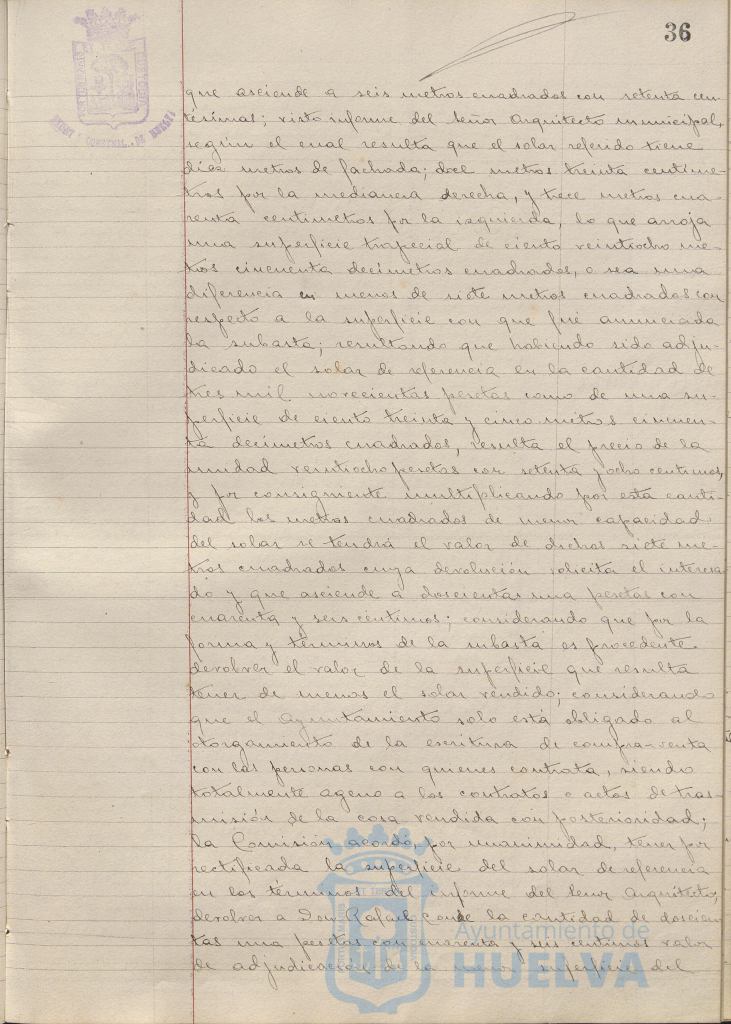 36
que asciende a seis metros cuadrados con setenta cen-
tésimas; visto informe del Señor Arquitecto municipal,
según el cual resulta que el solar referido tiene
diez metros de fachada; doce metros treinta centíme-
tros por la medianera derecha, y trece metros cua-
renta centímetros por la izquierda, lo que arroja
una superficie trapecial de ciento veintiocho me-
tros cincuenta decímetros cuadrados, o sea una
diferencia en menos de siete metros cuadrados con
respecto a la superficie con que fué anunciada
la subasta; resultando que habiendo sido adju-
dicado el solar de referencia en la cantidad de
tres mil novecientas pesetas como de una su-
perficie de ciento treinta y cinco metros cincuen-
ta decímetros cuadrados, resulta el precio de la
unidad veintiocho pesetas con setenta y ocho centimos,
y por consiguiente multiplicando por esta canti-
dad los metros cuadrados de menor capacidad
del solar se tendrá el valor de dichos siete me-
tros cuadrados cuya devolución solicita el interesa-
do y que asciende a doscientas una pesetas con
cuarenta y seis centimos; considerando que por la
forma y términos de la subasta es procedente
devolver el valor de la superficie que resulta
tener de menos el solar vendido; considerando
que el Ayuntamiento solo está obligado al
otorgamiento de la escritura de compra-venta
con las personas con quienes contrata, siendo
totalmente ageno a los contratos o actos de tras-
misión de la cosa vendida con posterioridad;
la Comisión acordó, por unanimidad, tener por
rectificada la superficie del solar de referencia
en los términos del informe del Señor Arquitecto,
devolver a Don Rafael Conde la cantidad de doscien-
tas una pesetas con cuarenta y seis centimos valor
de adjudicación de la menor superficie del
Ayuntamiento de
HUELVA